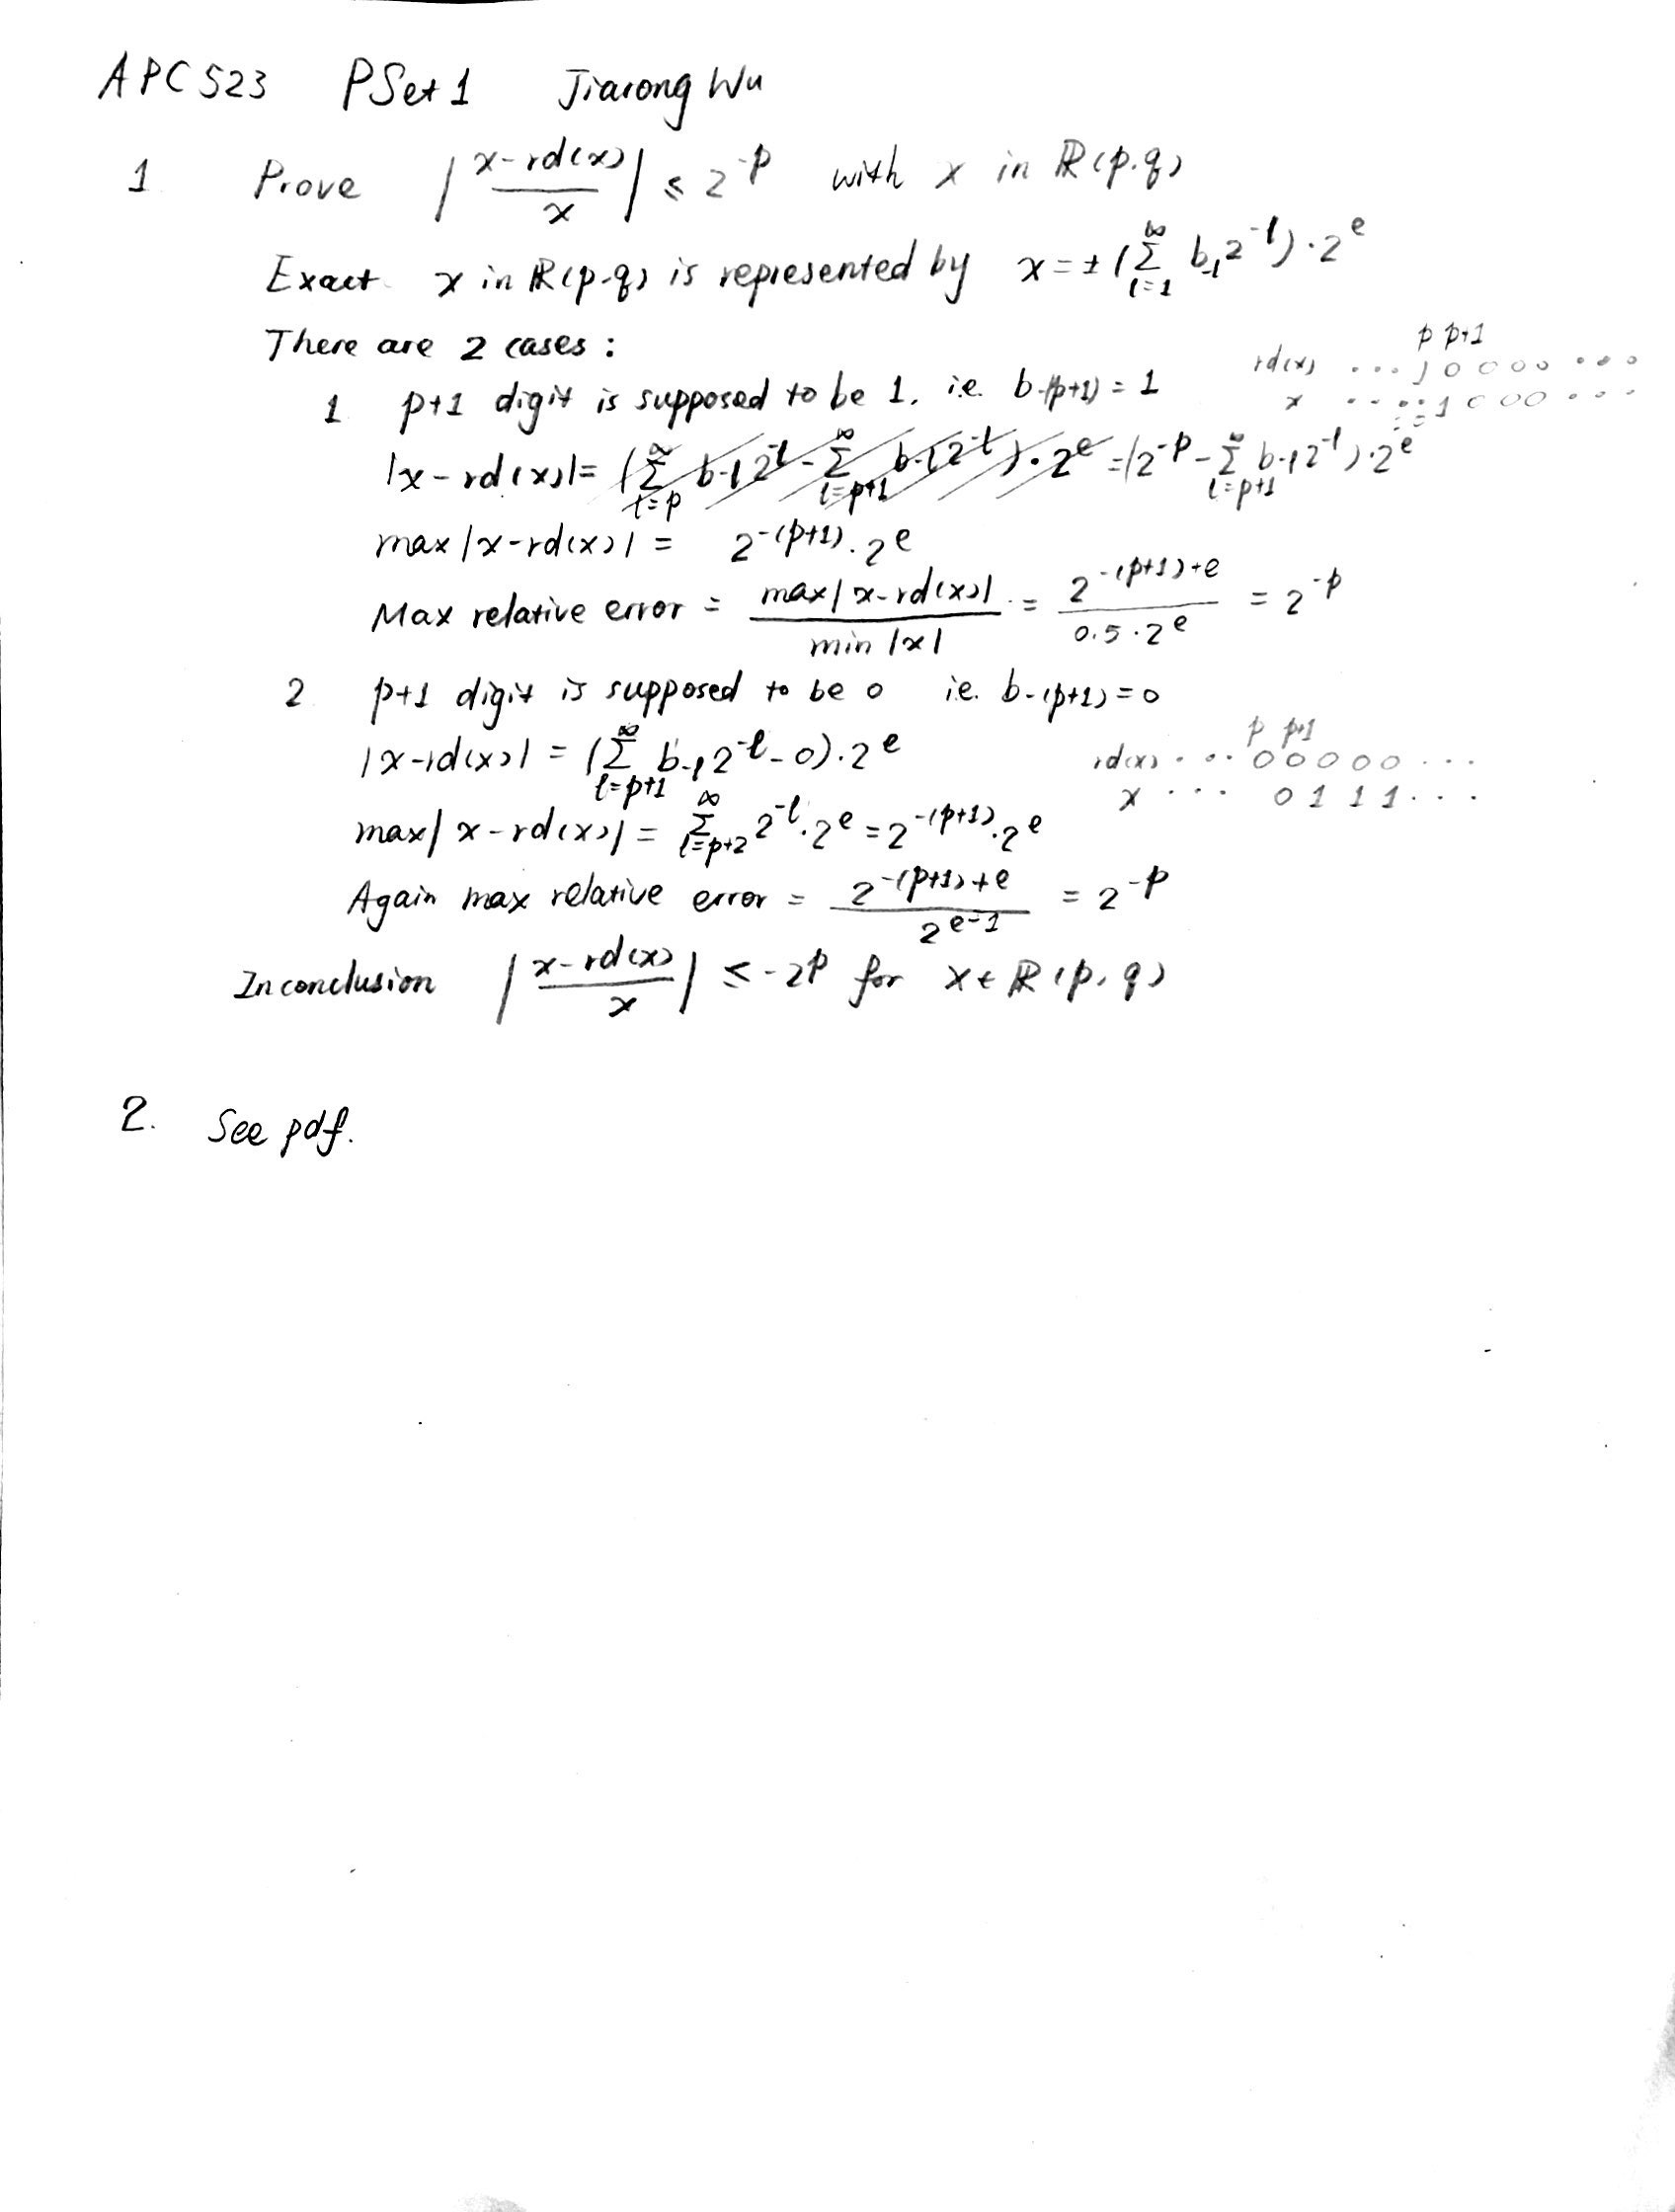 APC 523 PSet 1 Jiarong Wu
1 Prove |x-rd(x)/x| ≤ 2^-p with x in ℝ(p.q)
Exact x in ℝ(p.q) is represented by x = ± (∑_{l=1}^∞ b_-l 2^-l)·2^e
There are 2 cases :
p p+1
rd(x) ... 1 0 0 0 0 ...
1 p+1 digit is supposed to be 1. i.e. b-(p+1) = 1
x .... 1 0 0 0 ...
|x-rd(x)| = (∑_{l=p}^∞ b-l 2^-l - ∑_{l=p+1}^∞ b-l 2^-l)·2^e = (2^-p - ∑_{l=p+1}^∞ b-l 2^-l)·2^e
max |x-rd(x)| = 2^-(p+1)·2^e
Max relative error = max|x-rd(x)| / min |x| = 2^-(p+1)+e / 0.5·2^e = 2^-p
2 p+1 digit is supposed to be 0 i.e. b-(p+1) = 0
p p+1
|x-rd(x)| = (∑_{l=p+1}^∞ b-l 2^-l - 0)·2^e
rd(x) ... 0 0 0 0 0 ...
x ... 0 1 1 1 ...
max| x-rd(x)| = ∑_{l=p+2}^∞ 2^-l·2^e = 2^-(p+1)·2^e
Again max relative error = 2^-(p+1)+e / 2^e-1 = 2^-p
In conclusion |x-rd(x)/x| ≤ -2^p for x ∈ ℝ(p, q)
2. See pdf.